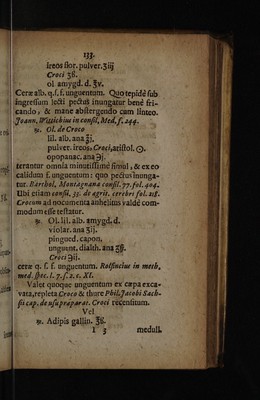 133.
ireos flor. pulver. ʒiij
Croci ʒß.
ol amygd. d. ℥v.
Ceræ alb. q.s. f. unguentum. Quo tepidè sub
ingressum lecti pectus inungatur benè fri-
cando, & mane abstergendo cum linteo.
Joann. Wittichius in consil. Med. f. 244.
℞. Ol. de Croco
lil. alb. ana ℥j.
pulver. ireos, Croci, aristol. ☉.
opopanac. ana ℈j.
terantur omnia minutissimè simul, & ex eo
calidum f. unguentum: quo pectus inunga-
tur. Barthol. Montagnana consil. 77. fol. 404.
Ubi etiam consil. 35. de ægrit. cerebri fol. 28.
Crocum ad nocumenta anhelitus valdè com-
modum esse testatur.
℞. Ol. lil. alb. amygd. d.
violar. ana ʒij.
pingued. capon.
unguent. dialth. ana ʒß.
Croci ℈ii.
ceræ q. s. f. unguentum. Rolfincius in meth.
med. spec. l. 7. s. 2. c. XI.
Valet quoque unguentum ex cæpa exca-
vata, repleta Croco & thure Phil. Jacobi Sach-
sii cap. de usu præparat. Croci recensitum.
Vel
℞. Adipis gallin. ℥ß.
I 3 medull.